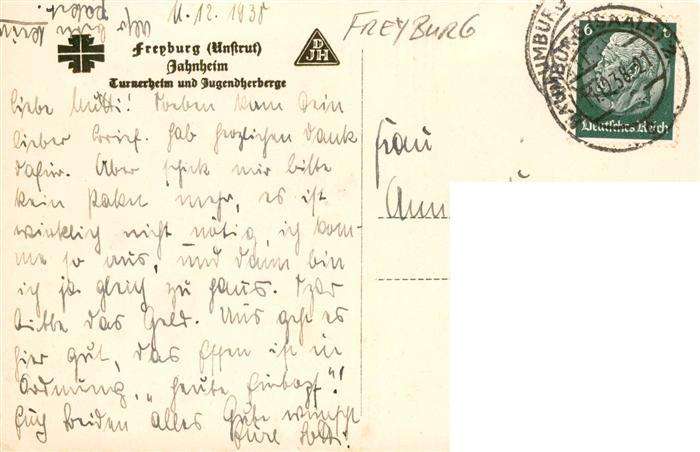 11.12.1938
Freyburg (Unstrut)
Jahnheim
Turnerheim und Jugendherberge
DJH
FREYBURG
6
Deutsches Reich
Liebe Mutti! Soeben kam Dein
lieber Brief. Hab herzlichen Dank
dafür. Aber schick mir bitte
kein Paket mehr, es ist
wirklich nicht nötig, ich kom-
me so aus, und dann bin
ich ja gleich zu Haus.
bitte das Geld. Uns geht es
hier gut, das Essen ist in
Ordnung, „heute Eintopf"!
Euch beiden alles Gute wünscht
Eure
Frau